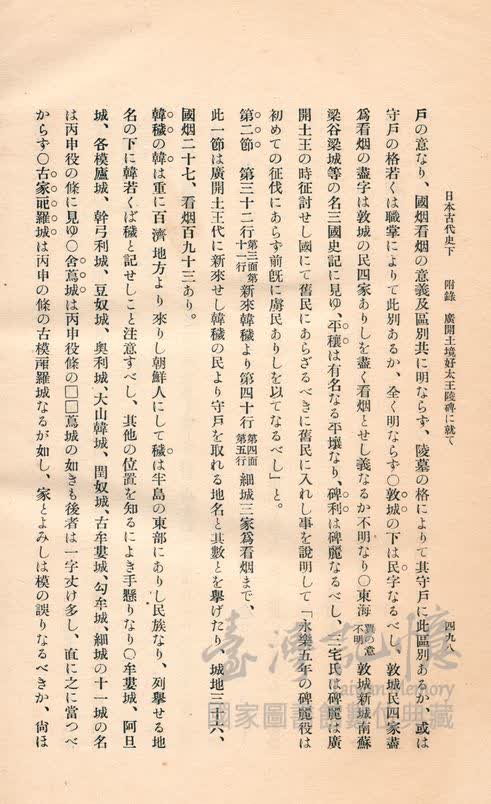 日本古代史下　附錄　廣開土境好太王陵碑に就て　四九八
戶の意なり、國烟看烟の意義及區別共に明ならず、陵墓の格によりて其守戶に此區別あるか、或は
守戶の格若くは職掌によりて此別あるか、全く明ならず〇敦城の下は民字なるべし、敦城民四家盡
爲看烟の盡字は敦城の民四家ありしを盡く看烟とせし義なるか不明なり〇東海賈の意不明敦城新城南蘇
梁谷梁城等の名三國史記に見ゆ、平穰は有名なる平壤なり、碑利は碑麗なるべし、三宅氏は碑麗は廣
開土王の時征討せし國にて舊民にあらざるべきに舊民に入れし事を說明して「永樂五年の碑麗役は
初めての征伐にあらず前旣に虜民ありしを以てなるべし」と。
第二節　第三十二行第三面第十二行新來韓穢より第四十行第四面第五行細城三家爲看烟まで、
此一節は廣開土王代に新來せし韓穢の民より守戶を取れる地名と其數とを擧げたり、城地三十六、
國烟二十七、看烟百九十三あり。
韓穢の韓は重に百濟地方より來りし朝鮮人にして穢は半島の東部にありし民族なり、列擧せる地
名の下に韓若くば穢と記せしこと注意すべし、其他の位置を知るによき手懸りなり〇牟婁城、阿旦
城、各模盧城、幹弓利城、豆奴城、奧利城、大山韓城、閏奴城、古牟婁城、勾牟城、細城の十一城の名
は丙申役の條に見ゆ〇舍蔦城は丙申役條の□□蔦城の如きも後者は一字丈け多し、直に之に當つべ
からず〇古家䣆羅城は丙申の條の古模䣆羅城なるが如し、家とよみしは模の誤りなるべきか、尙ほ
臺灣記憶
Taiwan Memory
國家圖書館數位典藏